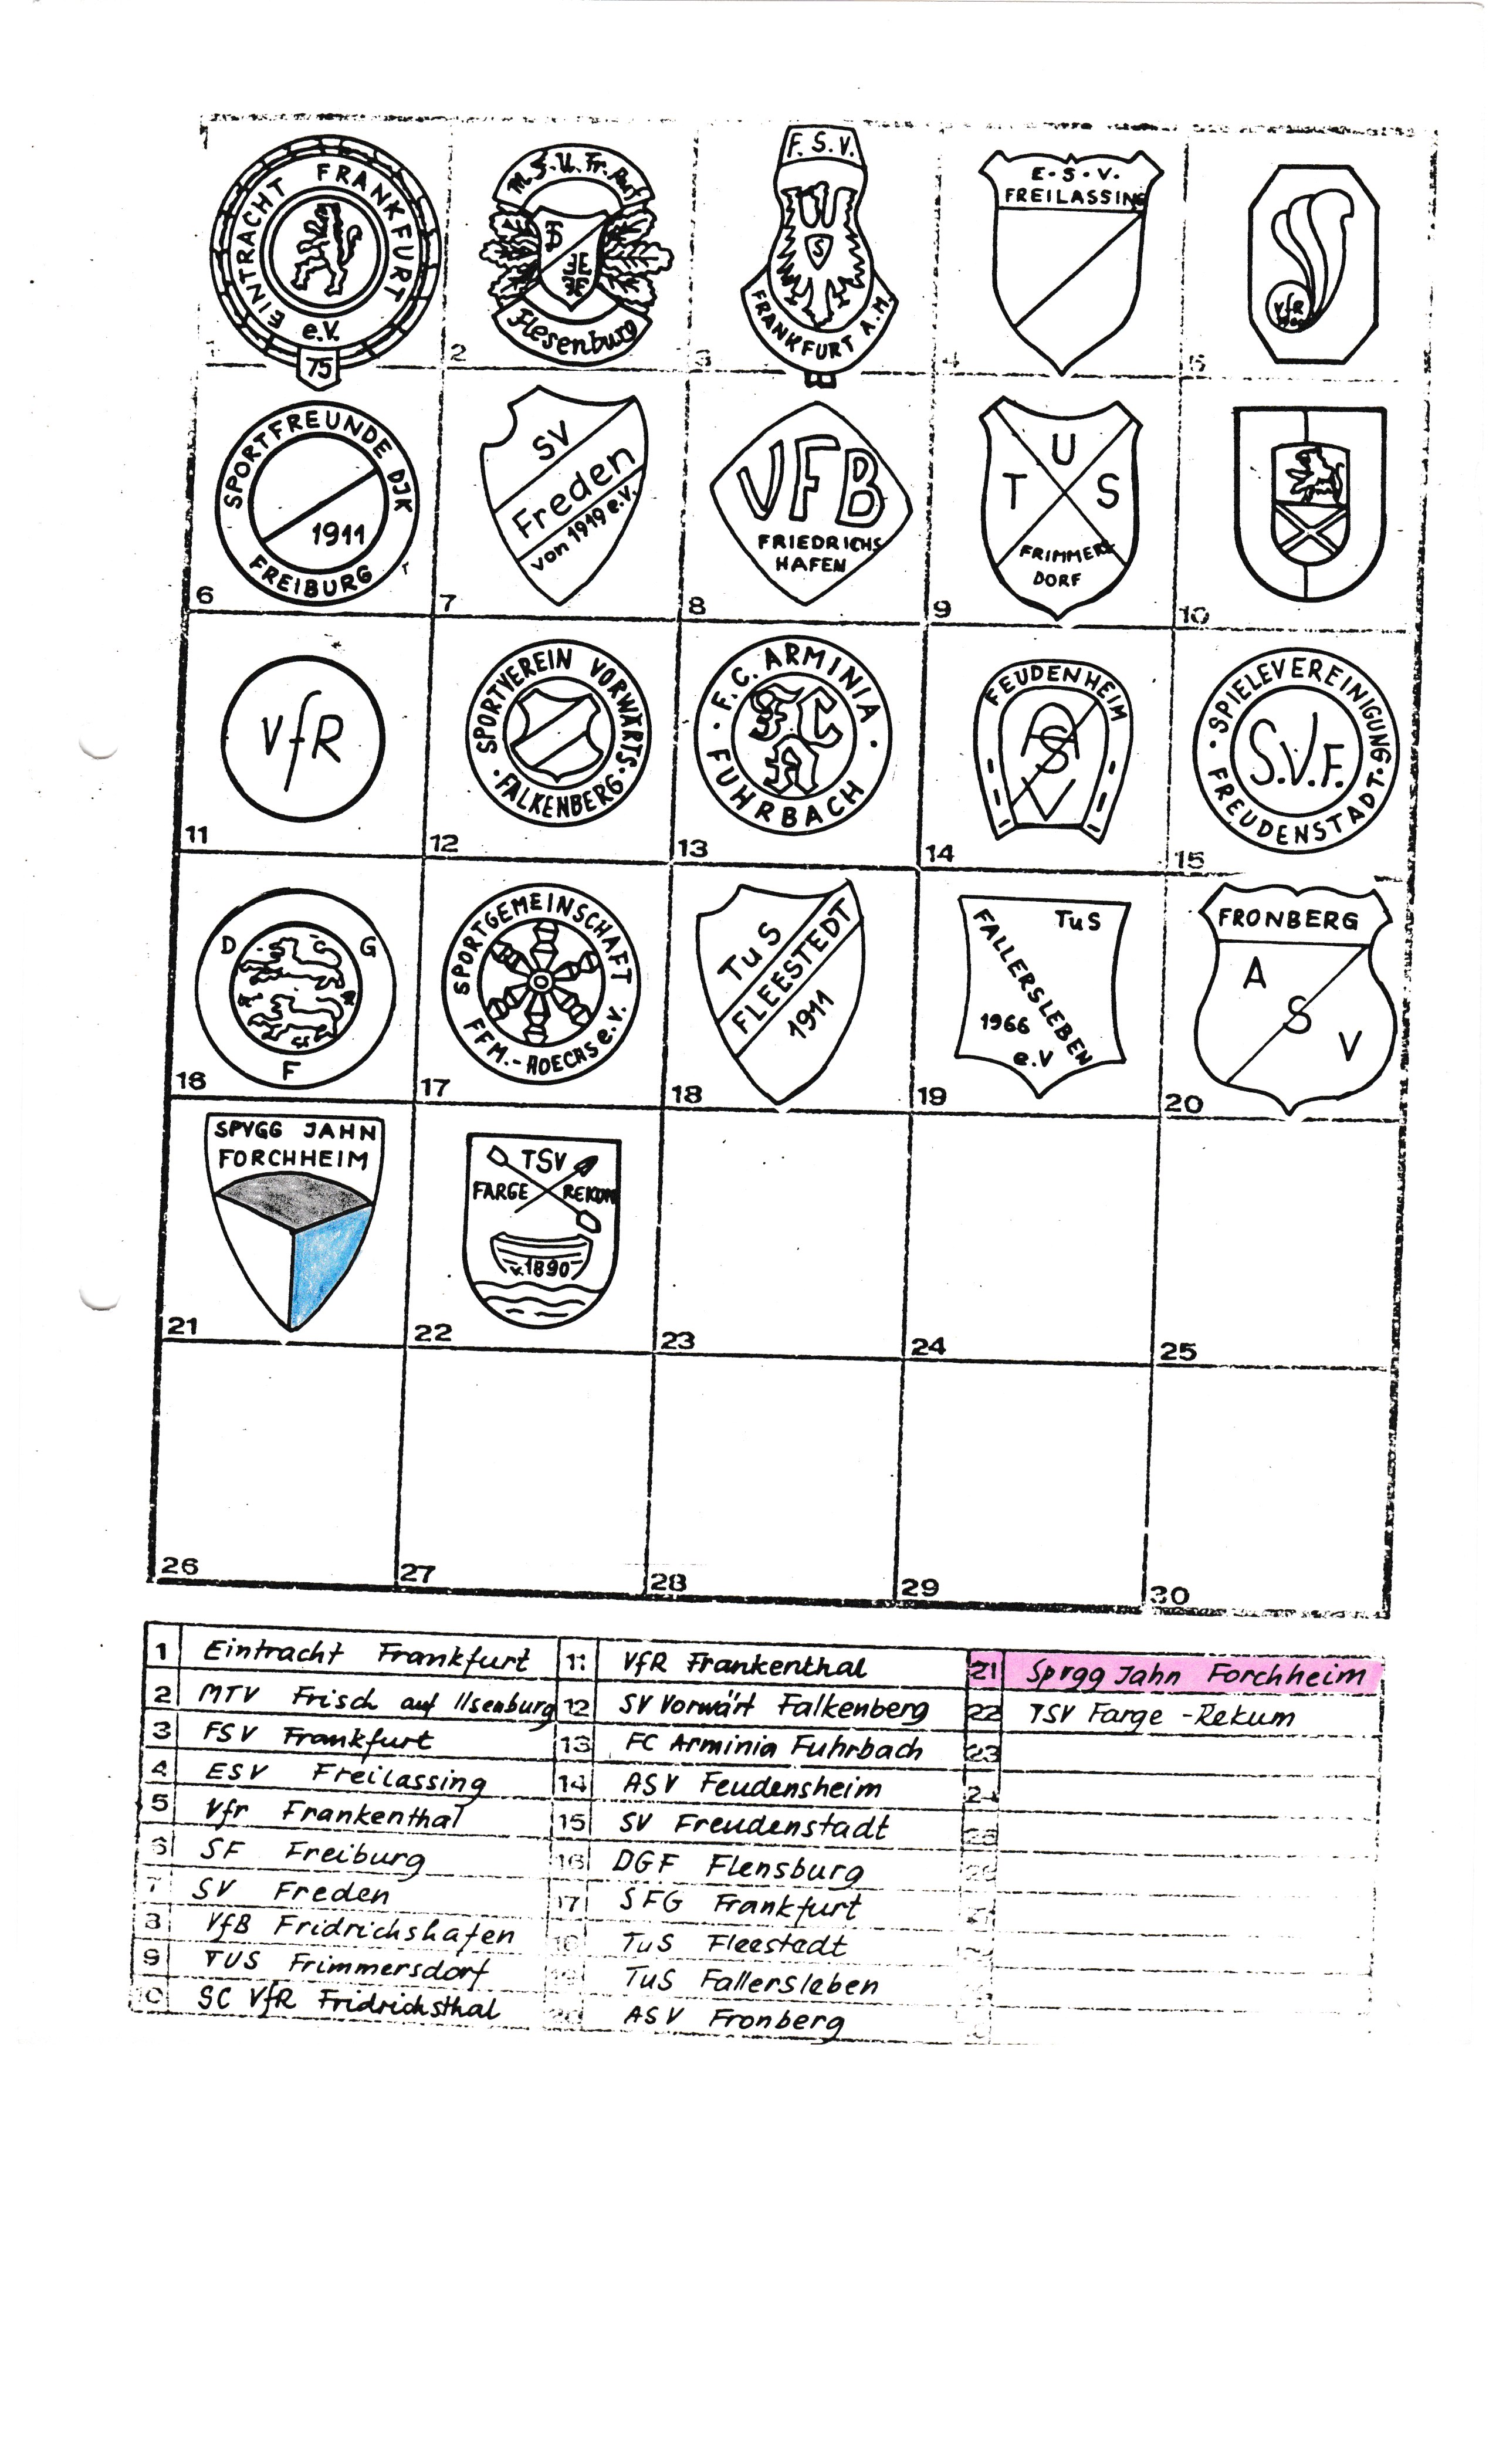 EINTRACHT FRANKFURT
e.V.
75
1
M.T.V. Fr. Auf
Jlsenburg
2
F. S. V.
S
FRANKFURT A.M.
3
E·S·V.
FREILASSING
4
VfR
5
SPORTFREUNDE DJK
1911
FREIBURG
6
SV
Freden
von 1919 e.V.
7
VFB
FRIEDRICHS
HAFEN
8
U
T S
FRIMMERS
DORF
9
10
VfR
11
SPORTVEREIN VORWÄRTS
FALKENBERG
12
F.C. ARMINIA
FCA
FUHRBACH
13
FEUDENHEIM
ASV
14
SPIELEVEREINIGUNG
S.V.F.
FREUDENSTADT
15
D G
F
16
SPORTGEMEINSCHAFT
FFM.-HOECHS e.V.
17
TuS
FLEESTEDT
1911
18
TuS
FALLERSLEBEN
1966
e.V
19
FRONBERG
A
S
V
20
SPVGG JAHN
FORCHHEIM
21
TSV
FARGE REKUM
v.1890
22
23
24
25
26
27
28
29
30
1 Eintracht Frankfurt
2 MTV Frisch auf Ilsenburg
3 FSV Frankfurt
4 ESV Freilassing
5 Vfr Frankenthal
6 SF Freiburg
7 SV Freden
8 VfB Fridrichshafen
9 TUS Frimmersdorf
10 SC VfR Fridrichsthal
11 VfR Frankenthal
12 SV Vorwärt Falkenberg
13 FC Arminia Fuhrbach
14 ASV Feudensheim
15 SV Freudenstadt
16 DGF Flensburg
17 SFG Frankfurt
18 TuS Fleestedt
19 TuS Fallersleben
20 ASV Fronberg
21 Sprgg Jahn Forchheim
22 TSV Farge -Rekum
23
24
25
26